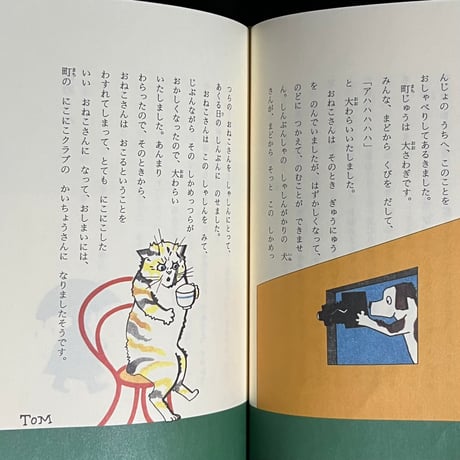 んじょの うちへ、このことを
おしゃべりしてあるきました。
町じゅうは 大さわぎです。
みんな、まどから くびを だして、
「アハハハハハ」
と 大わらいいたしました。
おねこさんは そのとき ぎゅうにゅう
を のんでいましたが、はずかしくなって、
のどに つかえて、のむことが できませ
ん。しんぶんしゃの しゃしんがかりの 犬
さんが、まどから そっと この しかめっ
つらの おねこさんを、しゃしんにとって、
あくる日の しんぶんに のせました。
おねこさんは この しゃしんを みて、
じぶんながら その しかめっつらが
おかしくなったので、大わらい
いたしました。あんまり
わらったので、そのときから、
おねこさんは おこるということを
わすれてしまって、とても にこにこした
いい おねこさんに なって、おしまいには、
町の にこにこクラブの かいちょうさんに なりましたそうです。
TOM